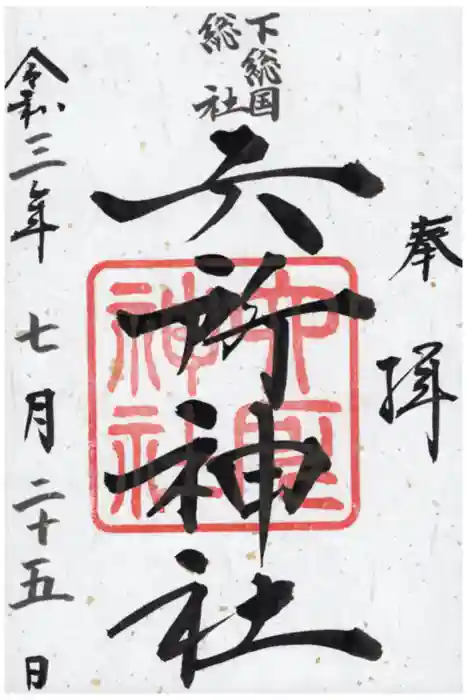 奉拝
下総国
総社
六所神社
六所神社
令和三年七月二十五日